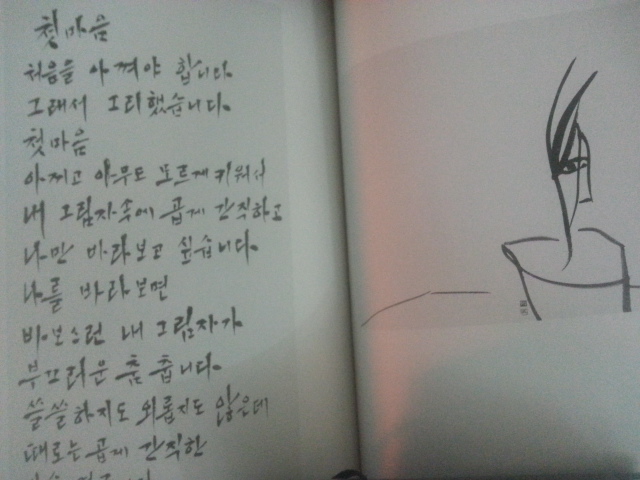 첫마음
처음을 아껴야 합니다.
그래서 그리했습니다.
첫마음
아끼고 아무도 모르게 키워서
내 그림자속에 곱게 간직하고
나만 바라보고 싶습니다.
나를 바라보면
바보스런 내 그림자가
부끄러운 춤 춥니다.
쓸쓸하지도 외롭지도 않은데
때로는 곱게 간직한